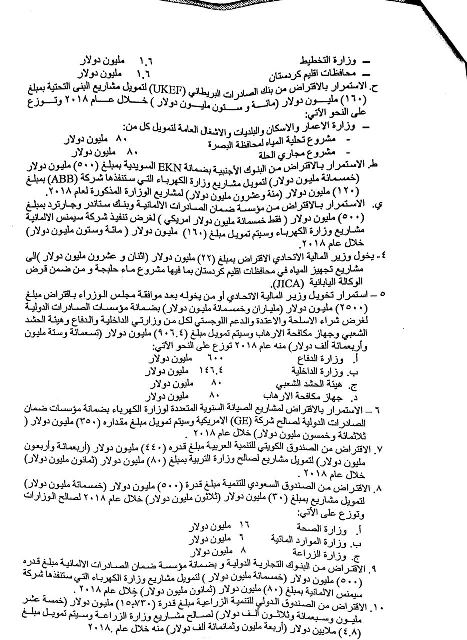 – وزارة التخطيط ١.٦ مليون دولار
– محافظات اقليم كردستان ١.٦ مليون دولار
ح. الاستمرار بالاقتراض من بنك الصادرات البريطاني (UKEF) لتمويل مشاريع البنى التحتية بمبلغ
(١٦٠) مليون دولار (مائة و ستون مليون دولار) خلال عام ٢٠١٨ وتوزع
على النحو الآتي:
– وزارة الاعمار والاسكان والبلديات والاشغال العامة لتمويل كل من:
– مشروع تحلية المياه لمحافظة البصرة ٨٠ مليون دولار
– مشروع مجاري الحلة ٨٠ مليون دولار
ط. الاستمرار بالاقتراض من البنوك الأجنبية بضمانة EKN السويدية بمبلغ (٥٠٠) مليون دولار
(خمسمائة مليون دولار) لتمويل مشاريع وزارة الكهرباء التي ستنفذها شركة (ABB) بمبلغ
(١٢٠) مليون دولار (مئة وعشرون مليون دولار) لمشاريع الوزارة المذكورة لعام ٢٠١٨.
ي. الاستمرار بالاقتراض من مؤسسة ضمان الصادرات الالمانية وبنك ستاندر وجارترد بمبلغ
(٥٠٠) مليون دولار (فقط خمسمائة مليون دولار امريكي) لغرض تنفيذ شركة سيمنس الالمانية
مشاريع وزارة الكهرباء وسيتم تمويل مبلغ (١٦٠) مليون دولار (مائة وستون مليون دولار)
خلال عام ٢٠١٨.
٤- يخول وزير المالية الاتحادي الاقتراض بمبلغ (٢٢) مليون دولار (اثنان و عشرون مليون دولار) الى
مشاريع تجهيز المياه في محافظات اقليم كردستان بما فيها مشروع ماء حلبجة و من ضمن قرض
الوكالة اليابانية (JICA).
٥- استمرار تخويل وزير المالية الاتحادي أو من يخوله بعد موافقة مجلس الوزراء باقتراض مبلغ
(٢٥٠٠) مليون دولار (ملياران وخمسمائة مليون دولار) بضمانة مؤسسات الصادرات الدولية
لغرض شراء الاسلحة والاعتدة والدعم اللوجستي لكل من وزارتي الداخلية والدفاع وهيئة الحشد
الشعبي وجهاز مكافحة الارهاب وسيتم تمويل مبلغ (٩٠٦.٤) مليون دولار (تسعمائة وستة مليون
وأربعمائة ألف دولار) منه عام ٢٠١٨ توزع على النحو الآتي:
أ. وزارة الدفاع ٦٠٠ مليون دولار
ب. وزارة الداخلية ١٤٦.٤ مليون دولار
ج. هيئة الحشد الشعبي ٨٠ مليون دولار
د. جهاز مكافحة الارهاب ٨٠ مليون دولار
٦- الاستمرار بالاقتراض لمشاريع الصيانة السنوية المتعددة لوزارة الكهرباء بضمانة مؤسسات ضمان
الصادرات الدولية لصالح شركة (GE) الامريكية وسيتم تمويل مبلغ مقداره (٣٥٠) مليون دولار (
ثلاثمائة وخمسون مليون دولار) خلال عام ٢٠١٨.
٧. الاقتراض من الصندوق الكويتي للتنمية العربية مبلغ قدره (٤٤٠) مليون دولار (أربعمائة وأربعون
مليون دولار) لتمويل مشاريع لصالح وزارة التربية بمبلغ (٨٠) مليون دولار (ثمانون مليون دولار)
خلال عام ٢٠١٨.
٨. الاقتراض من الصندوق السعودي للتنمية مبلغ قدره (٥٠٠) مليون دولار (خمسمائة مليون دولار)
لتمويل مشاريع بمبلغ (٣٠) مليون دولار (ثلاثون مليون دولار) خلال عام ٢٠١٨ لصالح الوزارات
وتوزع على الآتي:
أ. وزارة الصحة ١٦ مليون دولار
ب. وزارة الموارد المائية ٦ مليون دولار
ج. وزارة الزراعة ٨ مليون دولار
٩. الاقتراض من البنوك التجارية الدولية و بضمانة مؤسسة ضمان الصادرات الالمانية مبلغ قدره
(٥٠٠) مليون دولار (خمسمائة مليون دولار) لتمويل مشاريع وزارة الكهرباء التي ستنفذها شركة
سيمنس الالمانية بمبلغ (٨٠) مليون دولار (ثمانون مليون دولار) خلال عام ٢٠١٨.
١٠. الاقتراض من الصندوق الدولي للتنمية الزراعية مبلغ قدرة (١٥.٧٣٠) مليون دولار (خمسة عشر
مليون وسبعمائة وثلاثون ألف دولار) لتمويل مشاريع لصالح وزارة الزراعة وسيتم تمويل مبلغ
(٤.٨) ملايين دولار (أربعة مليون وثمانمائة ألف دولار) منه خلال عام ٢٠١٨.